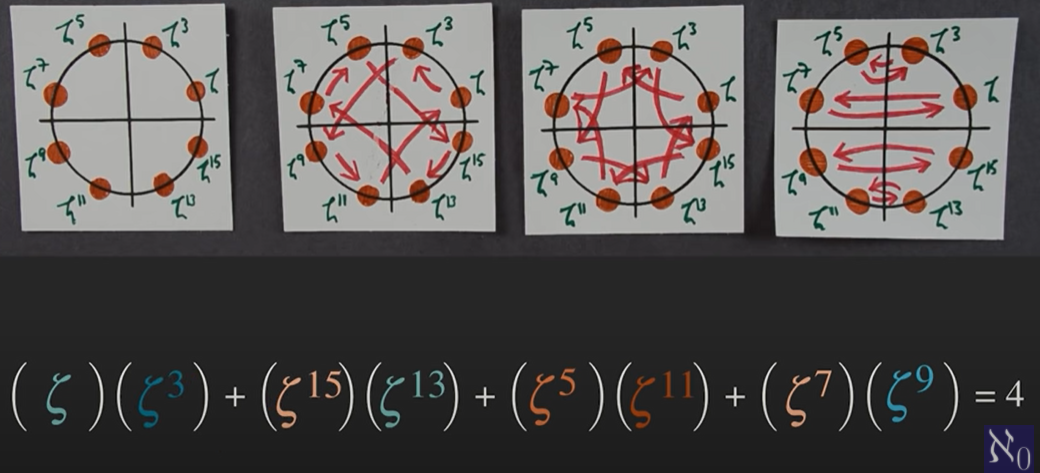 ζ⁵ ζ³
ζ⁷ ζ
ζ⁹ ζ¹⁵
ζ¹¹ ζ¹³
ζ⁵ ζ³
ζ⁷ ζ
ζ⁹ ζ¹⁵
ζ¹¹ ζ¹³
ζ⁵ ζ³
ζ⁷ ζ
ζ⁹ ζ¹⁵
ζ¹¹ ζ¹³
ζ⁵ ζ³
ζ⁷ ζ
ζ⁹ ζ¹⁵
ζ¹¹ ζ¹³
(ζ)(ζ³) + (ζ¹⁵)(ζ¹³) + (ζ⁵)(ζ¹¹) + (ζ⁷)(ζ⁹) = 4
ℵ₀